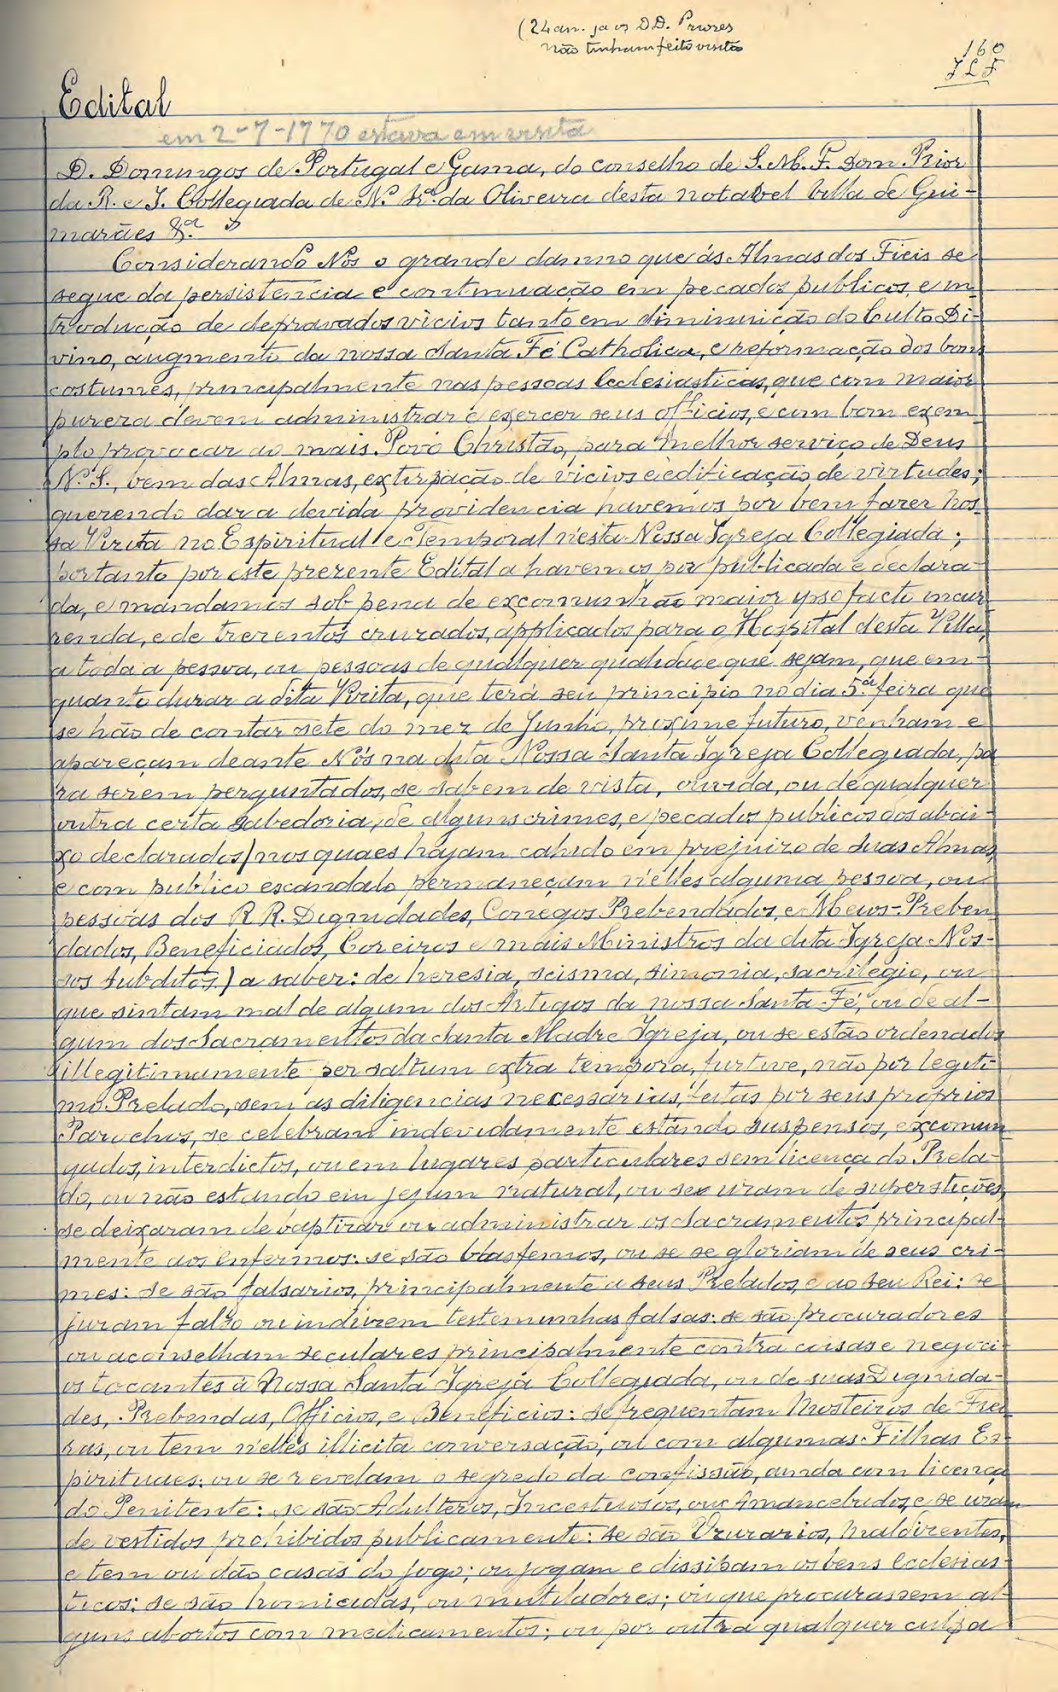 (24 an. ja os DD. Priores
não tinham feito visita
160
JLF
Edital
em 2-7-1770 estava em visita
D. Domingos de Portugal e Gama, do conselho de S. M. F. Dom Prior
da R. e I. Collegiada de N.ª Sr.ª da Oliveira desta notavel billa de Gui-
marães &.ª
Considerando Nós o grande damno que ás Almas dos Fieis se
segue da persistencia e continuação em pecados publicos, e in-
troducção de depravados vicios tanto em diminuição do Culto Di-
vino, augmento da nossa Santa Fé Catholica, e reformação dos bons
costumes, principalmente nas pessoas Ecclesiasticas, que com maior
pureza devem administrar e exercer seus officios, e com bom exem
plo provocar ao mais Povo Christão, para melhor serviço de Deus
N. S., bem das Almas, extirpação de vicios e edificação de virtudes;
querendo dar a devida providencia havemos por bem fazer Nos-
sa Vizita no Espiritual e Temporal n'esta Nossa Igreja Collegiada;
portanto por este prezente Edital a havemos por publicada e declara-
da, e mandamos sob pena de excomunhão maior ypso facto incur
renda, e de trezentos cruzados, applicados para o Hospital desta Villa,
a toda a pessoa, ou pessoas de qualquer qualidade que sejam, que em-
quanto durar a dita Vizita, que terá seu principio no dia 5.ª feira que
se hão de contar sete do mez de Junho, proximo futuro, venham e
apareçam deante Nós na dita Nossa Santa Igreja Collegiada, pa
ra serem perguntados, se sabem de vista, ouvida, ou de qualquer
outra certa sabedoria, de alguns crimes, e pecados publicos dos abai-
xo declarados/nos quaes hajam cahido em prejuizo de suas Almas,
e com publico escandalo permaneçam n'elles alguma pessoa, ou
pessoas dos R R. Dignidades, Conegos Prebendados, e Meios-Preben-
dados, Beneficiados, Coreiros e mais Ministros da dita Igreja Nos-
sos subditos) a saber: de heresia, scisma, simonia, sacrilegio, ou
que sintam mal de algum dos Artigos da nossa Santa Fé, ou de al-
gum dos Sacramentos da Santa Madre Igreja, ou se estão ordenados
illegitimamente per saltum extra tempora, furtive, não por legiti-
mo Prelado, sem as diligencias necessarias, feitas por seus proprios
Parochos, se celebram indevidamente estando suspensos, excomun
gados, interdictos, ou em lugares particulares sem licença do Prela-
do, ou não estando em jejum natural, ou se uzam de superstições,
se deixaram de baptizar ou administrar os Sacramentos principal-
mente aos Enfermos: se são blasfemos, ou se se gloriam de seus cri-
mes: se são falsarios, principalmente a seus Prelados, e ao seu Rei: se
juram falso ou induzem testemunhas falsas: se são procuradores
ou aconselham seculares principalmente contra coisas e negoci-
os tocantes á Nossa Santa Igreja Collegiada, ou de suas Dignida-
des, Prebendas, Officios, e Beneficios: se frequentam Mosteiros de Frei
ras, ou tem n'elles illicita conversação, ou com algumas Filhas Es-
pirituaes: ou se revelam o segredo da confissão, ainda com licença
do Penitente: se são Adulteros, Incestuosos, ou Amancebados, e se uzam
de vestidos prohibidos publicamente: se são Uzurarios, Maldizentes,
e tem ou dão casas do jogo; ou jogam e dissipam os bens Ecclesias-
ticos; se são homicidas, ou mutiladores; ou que procurassem al-
guns abortos com medicamentos; ou por outra qualquer culpa